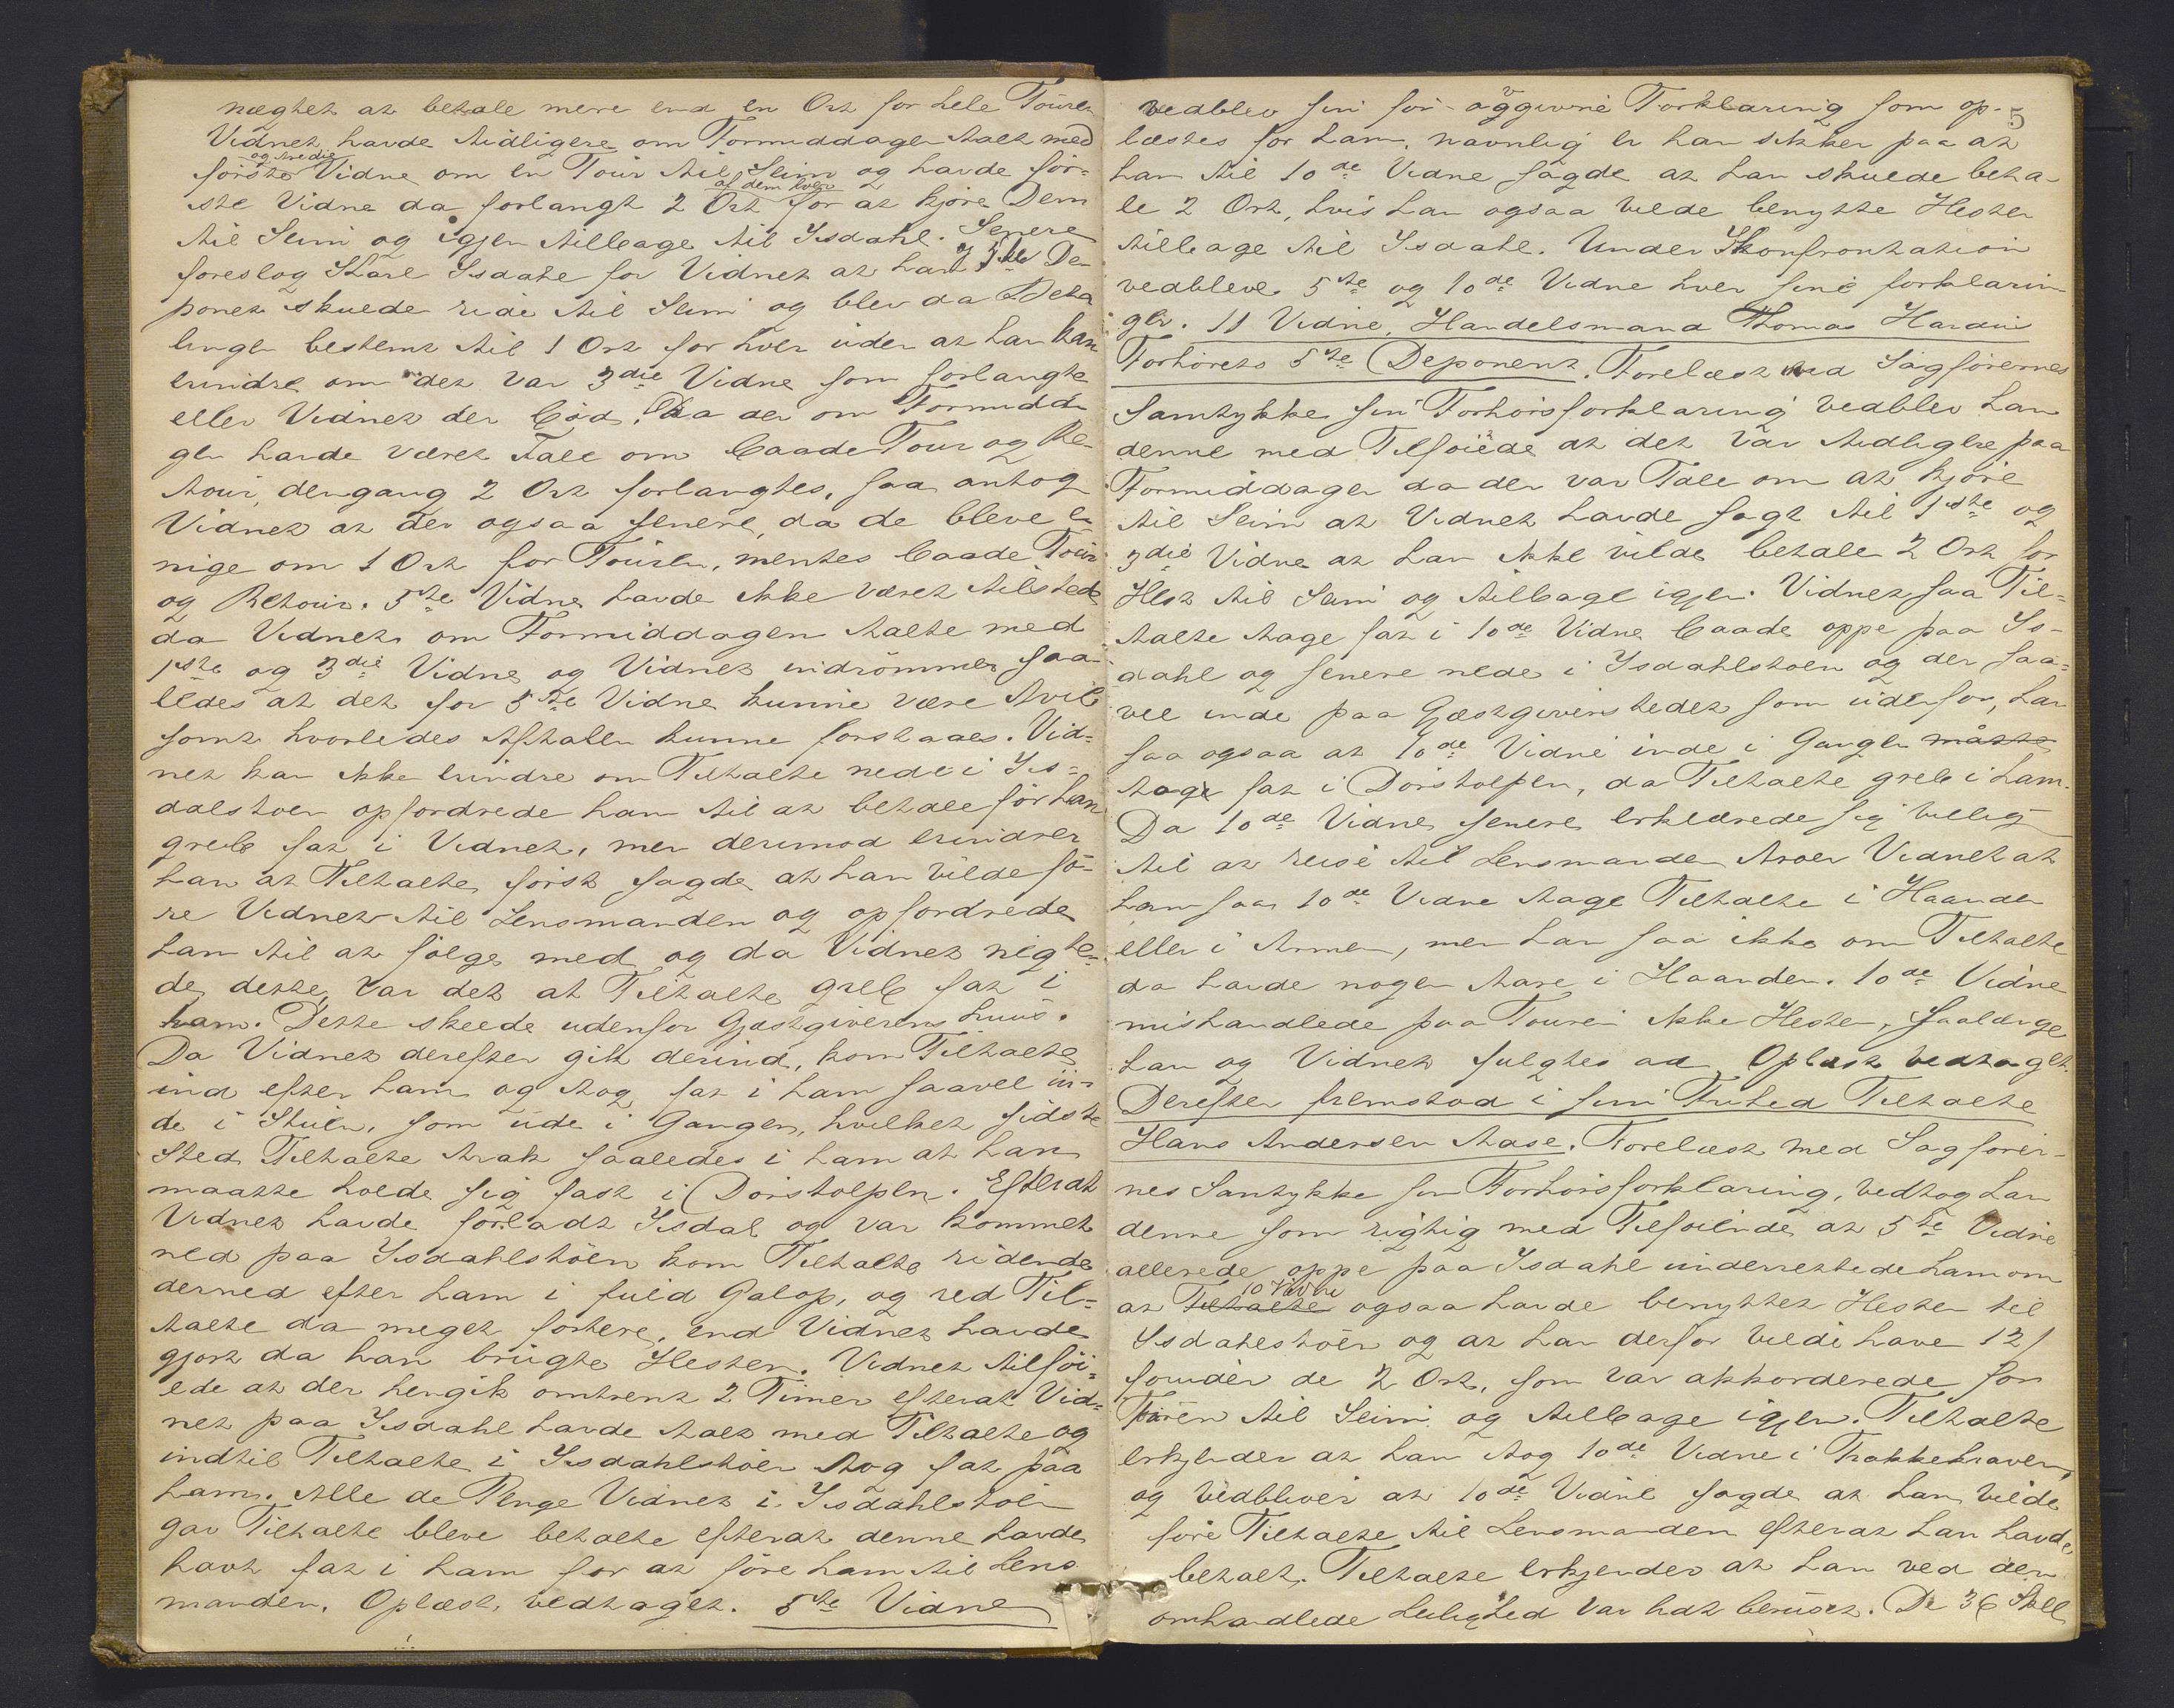 nægtet at betale mere end en Ort for hele Touren
Vidnet havde tidligere om Formiddagen talt med
og tredie
første Vidne om en Tour til Seim og havde før-
af dem hver
ste Vidne da forlangt 2 Ort for at kjøre Dem
til Seim og igjen tilbage til Isdahl. Senere
foreslog Karl Isdahl for Vidnet at han og 5te De-
ponent skulde ride til Seim og blev da Beta
lingen bestemt til 1 Ort for hver uden at han kan
erindre om det var 3die Vidne som forlangte
eller Vidnet der bød. Da der om Formidda
gen havde været Tale om baade Tour og Re-
tour, dengang 2 Ort forlangtes, saa antog
Vidnet at der ogsaa senere, da de bleve e-
nige om 1 Ort for Touren, mentes baade Tour
og Retour. 5te Vidne havde ikke været tilstede
da Vidnet om Formiddagen talte med
1ste og 3die Vidne og Vidnet indrømmer saa-
ledes at det for 5te Vidne kunne være tvil
somt hvorledes Aftalen kunne forstaaes. Vid-
net kan ikke erindre om Tiltalte nede i Is-
dalstøen opfordrede ham til at betale før han
greb fat i Vidnet, men derimod erindrer
han at Tiltalte først sagde at han vilde fø-
re Vidnet til Lensmanden og opfordrede
ham til at følge med og da Vidnet nigte-
de dette, var det at Tiltalte greb fat i
ham. Dette skeede udenfor Gjæstgiverens huus.
Da Vidnet derefter gik derind, kom Tiltalte
ind efter ham og tog fat i ham saavel in-
de i Stuen, som ude i Gangen, hvilket sidste
Sted Tiltalte trak saaledes i ham at han
maatte holde sig fast i Dørstolpen. Efterat
Vidnet havde forladt Isdal og var kommet
ned paa Isdahlstøen kom Tiltalte ridende
derned efter ham i fuld Galop, og red Til-
talte da meget fortere, end Vidnet havde
gjort da han brugte Hesten. Vidnet tilføi-
ede at der hengik omtrent 2 Timer efterat Vid-
net paa Isdahl havde talt med Tiltalte og
indtil Tiltalte i Isdahlstøen tog fat paa
ham. Alle de Penge Vidnet i Isdahlstøen
gav Tiltalte bleve betalte efterat denne havde
havt fat i ham for at føre ham til Lens
manden. Oplæst, vedtaget. 5te Vidne
5
vedblev sin før afgivne Forklaring som op-
læstes for ham, navnlig er han sikker paa at
han til 10de Vidne sagde at han skulde beta-
le 2 Ort, hvis han ogsaa vilde benytte Hesten
tilbage til Isdahl. Under Konfrontation
vedbleve 5te og 10de Vidne hver sine forklarin
ger. 11 Vidne, Handelsmand Thomas
Forhørets 5te Deponent. Forelæst med Sagførernes
Samtykke sin Forhørsforklaring vedblev han
denne med Tilføiede at det var tidligere paa
Formiddagen da der var Tale om at kjøre
til Seim at Vidnet havde sagt til 1ste og
3die Vidne at han ikke vilde betale 2 Ort for
Hest til Seim og tilbage igjen. Vidnet saa Til-
talte tage fat i 10de Vidne baade oppe paa Is-
dahl og senere nede i Isdahlstøen og der saa-
vel inde paa Gjæstgiverstedet som udenfor, han
saa ogsaa at 10de Vidne inde i Gangen måtte
tage fat i Dørstolpen, da Tiltalte greb i ham.
Da 10de Vidne senere erklærede sig villig
til at reise til Lensmanden troer Vidnet at
han saa 10de Vidne tage Tiltalte i Haanden
eller i Armen, men han saa ikke om Tiltalte
da havde nogen Aare i Haanden. 10de Vidne
mishandlede paa Touren ikke Hesten, saalænge
han og Vidnet fulgtes ad. Oplæst vedtaget.
Derefter fremstod i sin Frihed Tiltalte
Hans Andersen Aase. Forelæst med Sagfører-
nes Samtykke sin Forhørsforklaring, vedtog han
denne som rigtig med Tilføiende at 5te Vidne
allerede oppe paa Isdahl underrettede ham om
10 Vidne
at Tiltalte ogsaa havde benyttet Hesten til
Isdahlstøen og at han derfor vilde have 12 /
foruden de 2 Ort, som var akkorderede for
Touren til Seim og tilbage igjen. Tiltalte
erkjender at han tog 10de Vidne i Frakkekraven,
og vedbliver at 10de Vidne sagde at han vilde
føre Tiltalte til Lensmanden efterat han havde
betalt. Tiltalte erkjender at han ved den
omhandlede Leilighed var lidt beruset. De 36 Skill